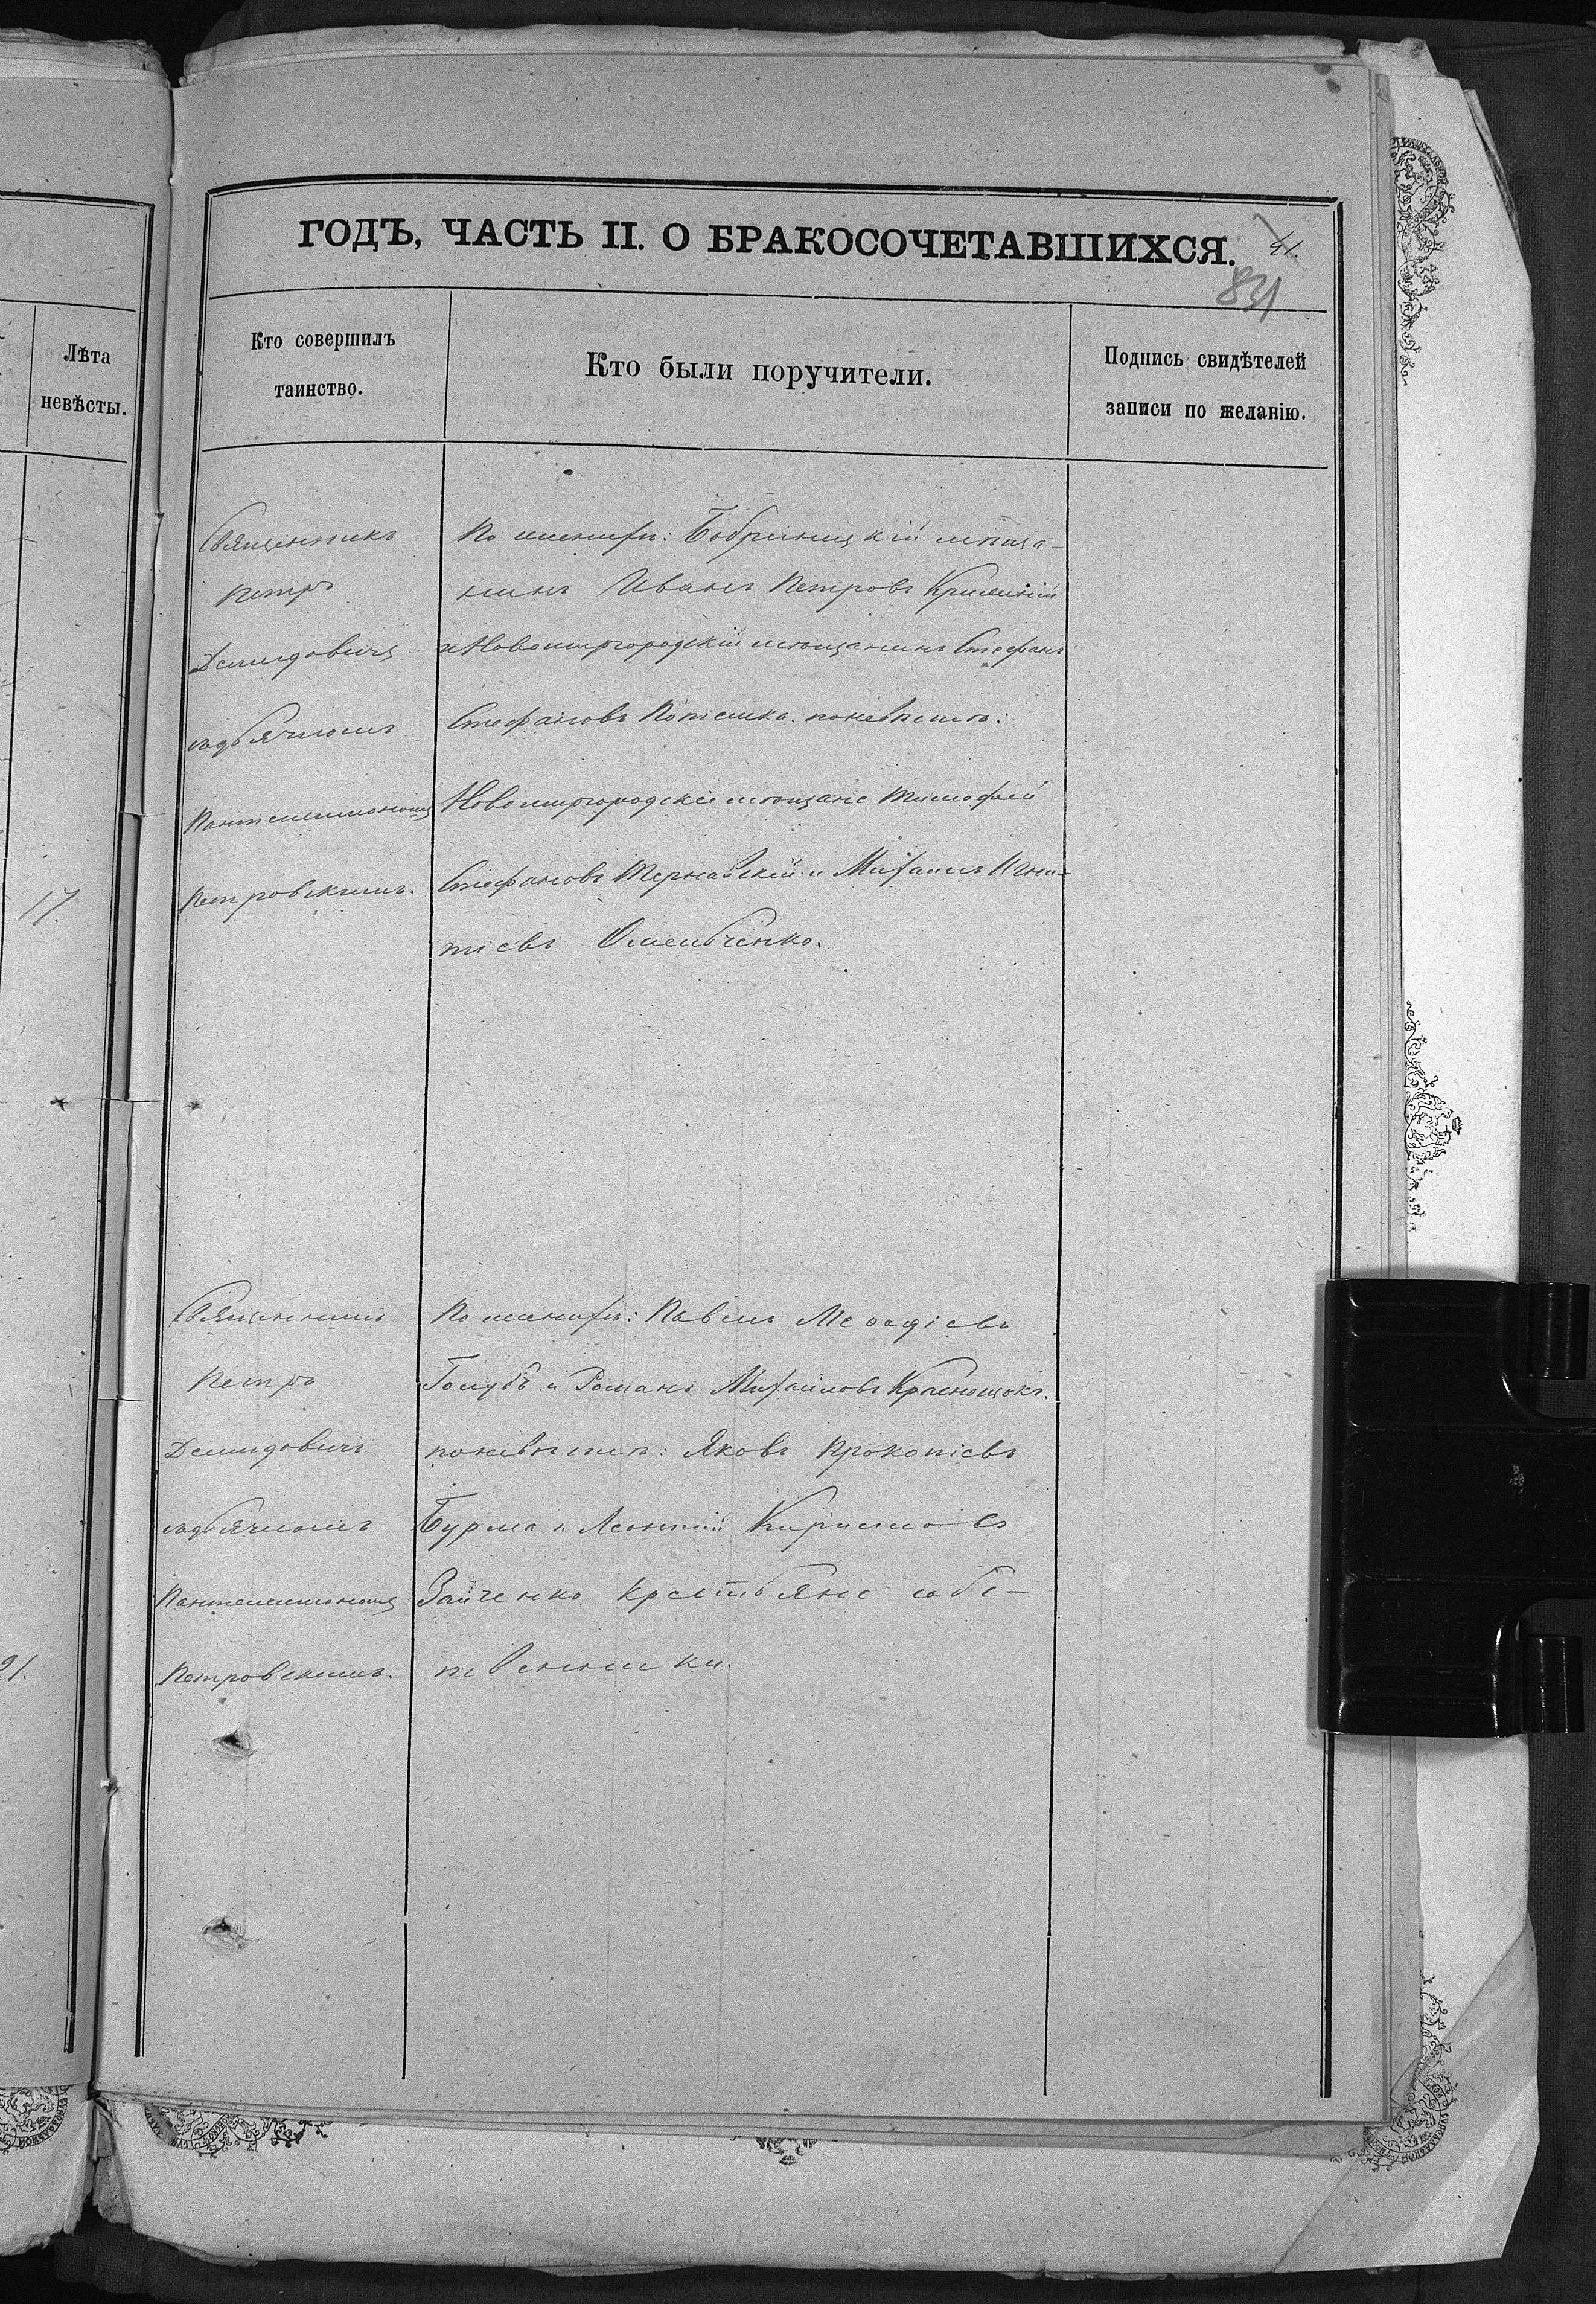 ГОДЪ, ЧАСТЬ II. О БРАКОСОЧЕТАВШИХСЯ.
41.
831
Лѣта
невѣсты.
Кто совершилъ
таинство.
Кто были поручители.
Подпись свидѣтелей
записи по желанію.
Священникъ
Петръ
Демидовичъ
съ дьячкомъ
Пантелеимономъ
Петровскимъ.
По женихѣ: Бобринецкій мѣща-
нинъ Иванъ Петровъ
и Новомиргородскій мѣщанинъ Стефанъ
Стефановъ поневѣстѣ:
Новомиргородскіе мѣщане Тимофей
Стефановъ Тернавскій и Михаилъ Игна-
тіевъ Омельченко.
17.
Священникъ
Петръ
Демидовичъ
съ дьячкомъ
Пантелеимономъ
Петровскимъ.
По женихѣ: Павелъ
Голубъ и Романъ Михаиловъ Краснощокъ.
поневѣстѣ: Яковъ Прокопіевъ
Бурма и Леонтій Кириловъ
Зайченко крестьяне собс-
твенники.
21.